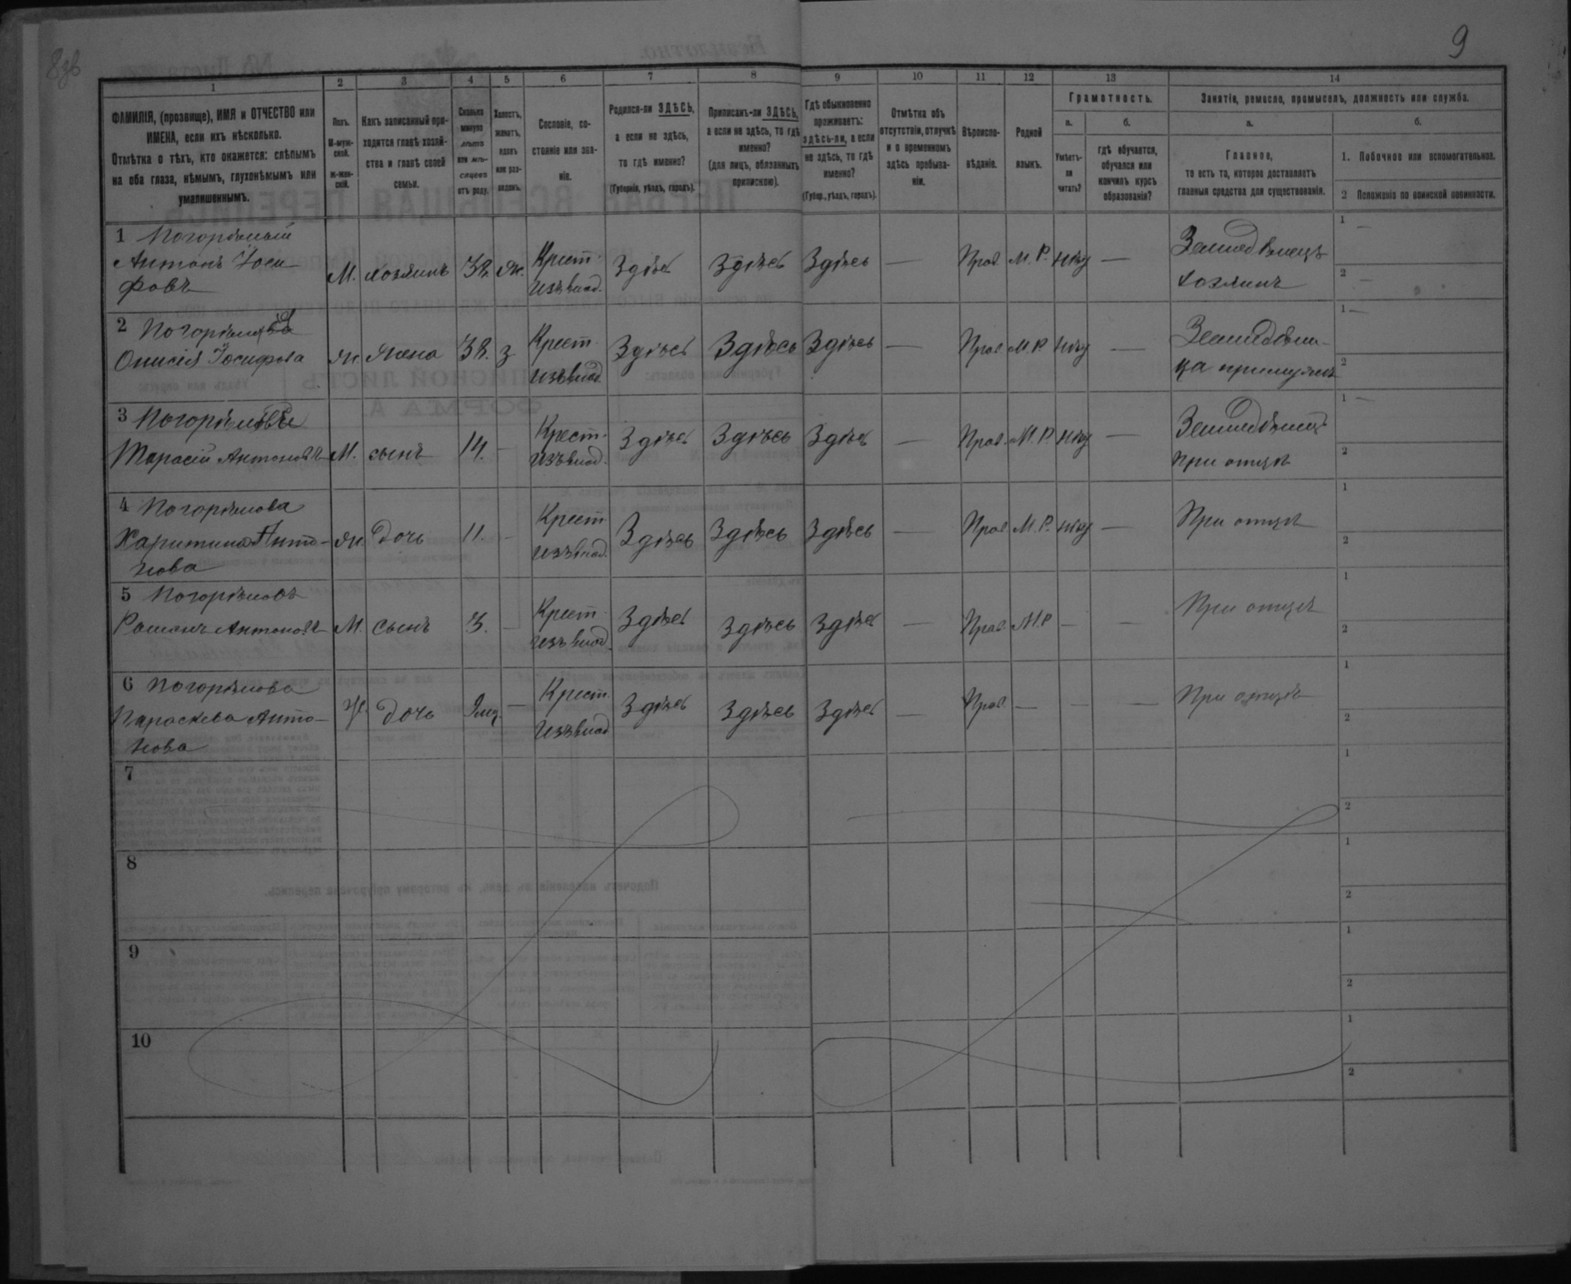 9
1
2
3
4
5
6
7
8
9
10
11
12
13
14
ФАМИЛІЯ, (прозвище), ИМЯ и ОТЧЕСТВО или
ИМЕНА, если ихъ нѣсколько.
Отмѣтка о тѣхъ, кто окажется: слѣпымъ
на оба глаза, нѣмымъ, глухонѣмымъ или
умалишеннымъ.
Полъ.
М-муж-
ской.
Ж-жен-
скій.
Какъ записанный при-
ходится главѣ хозяй-
ства и главѣ своей
семьи.
Сколько
минуло
лѣтъ
или мѣ-
сяцевъ
отъ роду.
Холостъ,
женатъ,
вдовъ
или раз-
веденъ.
Сословіе, со-
стояніе или зва-
ніе.
Родился-ли ЗДѢСЬ,
а если не здѣсь,
то гдѣ именно?
(Губернія, уѣздъ, городъ).
Приписанъ-ли ЗДѢСЬ,
а если не здѣсь, то гдѣ
именно?
(для лицъ, обязанныхъ
припискою).
Гдѣ обыкновенно
проживаетъ:
здѣсь-ли, а если
не здѣсь, то гдѣ
именно?
(Губер., уѣздъ, городъ).
Отмѣтка объ
отсутствіи, отлучкѣ
и о временномъ
здѣсь пребыва-
ніи.
Вѣроиспо-
вѣданіе.
Родной
языкъ.
Грамотность.
а.
Умѣетъ-
ли
читать?
б.
гдѣ обучается,
обучался или
кончилъ курсъ
образованія?
Занятіе, ремесло, промыселъ, должность или служба.
а.
Главное,
то есть то, которое доставляетъ
главныя средства для существованія.
б.
1. Побочное или вспомогательное.
2 Положеніе по воинской повинности.
1 Погорѣлый
Антонъ Іоси-
фовъ
М. хозяинъ 38. Ж. Крест. Здѣсь Здѣсь Здѣсь — Прав. М. Р. нѣтъ — Земледѣлецъ
хозяинъ
1 —
2 —
2 Погорѣлова
Онисія Іосифова Ж. Жена 38. З Крест. Здѣсь Здѣсь Здѣсь — Прав. М. Р. нѣтъ —
1 —
2
3 Погорѣловъ
Тарасій Антоновъ М. сынъ 14. — Крест. Здѣсь Здѣсь Здѣсь — Прав. М. Р. нѣтъ — Земледѣлецъ
при отцѣ
1 —
2
4 Погорѣлова
Харитина Анто-
нова
Ж. Дочь 11. — Крест. Здѣсь Здѣсь Здѣсь — Прав. М. Р. нѣтъ — При отцѣ
1
2
5 Погорѣловъ
Романъ Антоновъ М. Сынъ 3. — Крест. Здѣсь Здѣсь Здѣсь — Прав. М. Р. — — При отцѣ
1
2
6 Погорѣлова
Параскева Анто-
нова
Ж. Дочь — Крест. Здѣсь Здѣсь Здѣсь — Прав. — — — При отцѣ
1
2
7
1
2
8
1
2
9
1
2
10
1
2